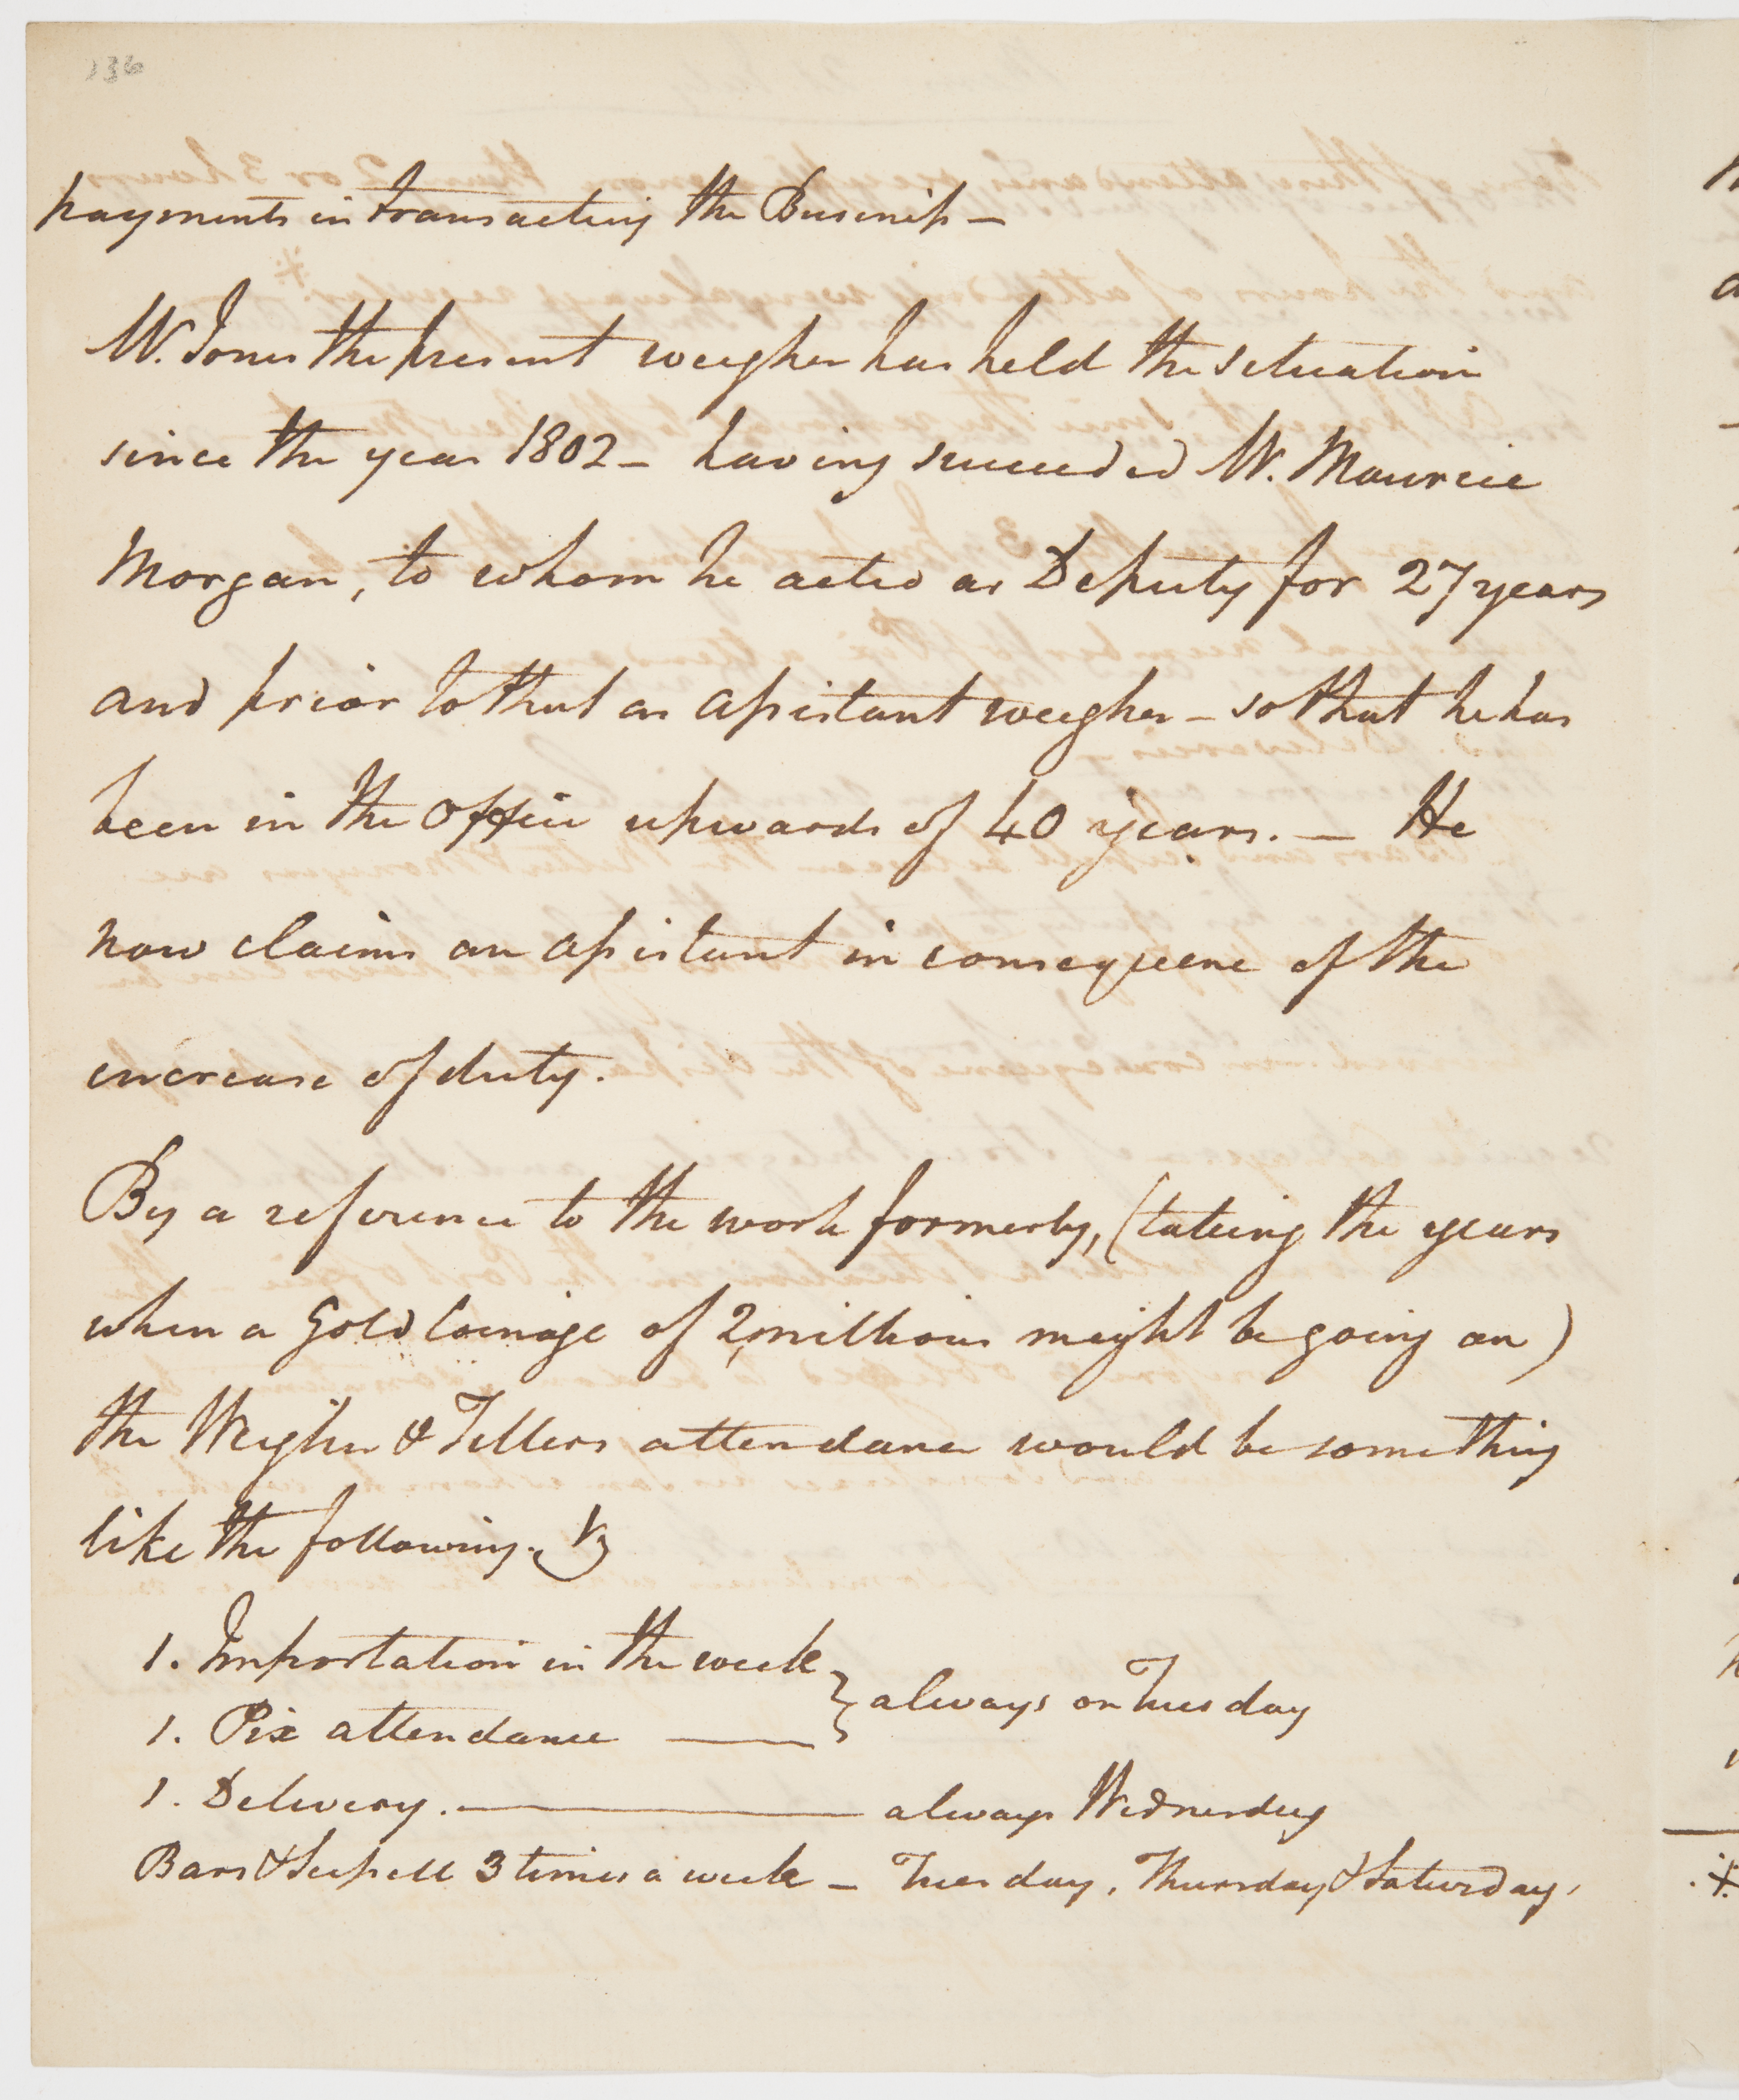 136
payments in transacting the Business —
Mr. Jones the present weigher has held the situation
since the year 1802 — having succeeded Mr. Maurice
Morgan, to whom he acted as Deputy for 27 years
and prior to that as assistant weigher — so that he has
been in the Office upwards of 40 years. — He
now claims an assistant in consequence of the
increase of duty.
By a reference to the work formerly, (taking the years
when a Gold Coinage of 2 millions might be going on)
the Weigher & Tellers attendance would be something
like the following. Vz
1. Importation in the week } always on Tuesday
1. Pix attendance —
1. Delivery. — always Wednesday
Bars & Scissell 3 times a week — Tuesday, Thursday & Saturday.